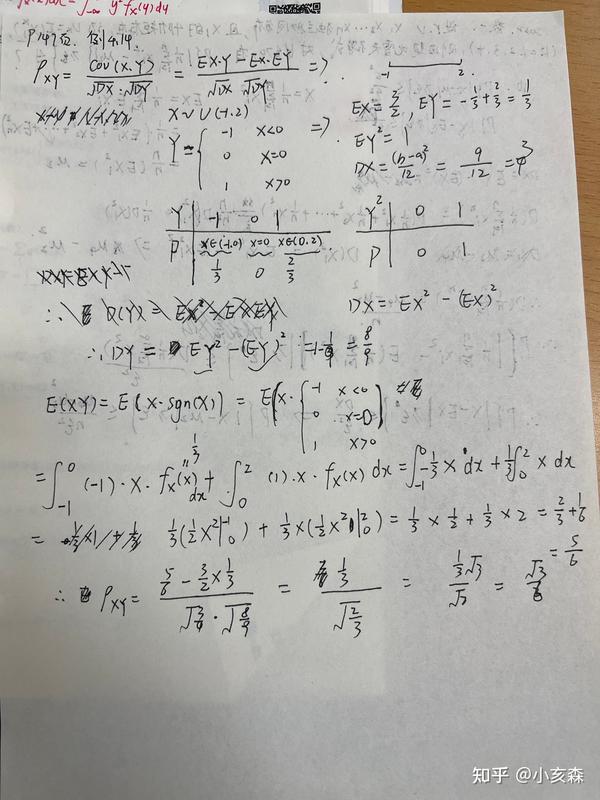 P147页. 例4.14.
ρXY = cov(X.Y) / √DX √DY = EX·Y - EX·EY / √DX √DY =>?
-1 2
X~U(-1.2) EX = 3/2, EY = -1/3 + 2/3 = 1/3
Y = { -1 x<0 => EY² = 1
0 x=0 DX = (b-a)²/12 = 9/12 = 3/4
1 x>0
Y -1 0 1 Y² 0 1
P x∈(-1.0) x=0 x∈(0.2) P 0 1
1/3 0 2/3
DX = EX² - (EX)²
∴ DY = EY² - (EY)² = 1 - 1/9 = 8/9
E(XY) = E(X·sgn(X)) = E(X· { -1 x<0
0 x=0
1 x>0 )
1/3
= ∫₋₁⁰ (-1)·x·fX(x) dx + ∫₀² (1)·x·fX(x) dx = ∫₋₁⁰ -1/3 x dx + 1/3 ∫₀² x dx
= 1/3 (1/2 x²|₀⁻¹) + 1/3 × (1/2 x²|₀²) = 1/3 × 1/2 + 1/3 × 2 = 2/3 + 1/6
= 5/6
∴ ρXY = (5/6 - 3/2 × 1/3) / (√3/4 · √8/9) = (1/3) / √2/3 = 1/3 √3 / √2 = √3
知乎 @小亥森